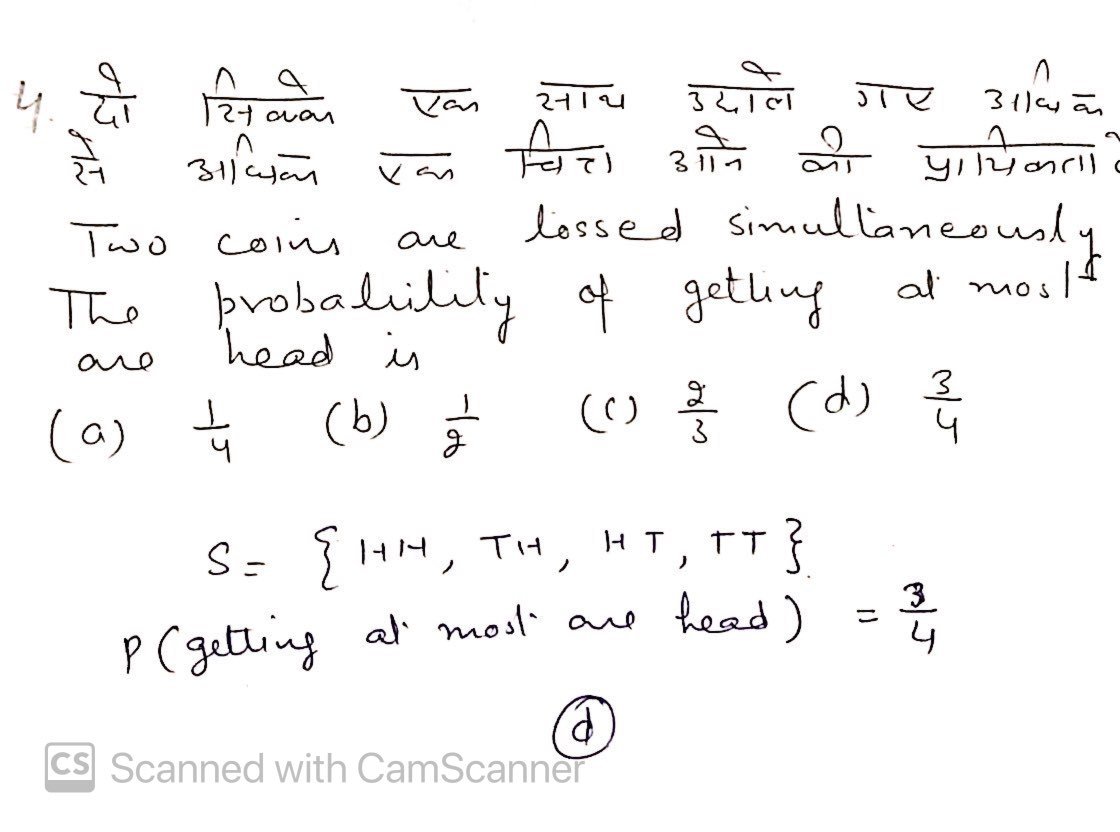 4. दो सिक्के एक साथ उछाले गए अधिक
से अधिक एक चित्त आने की प्रायिकता
Two coins are tossed simultaneously
The probability of getting at most
one head is
(a) 1/4 (b) 1/2 (c) 2/3 (d) 3/4
S = {HH, TH, HT, TT}
P (getting at most one head) = 3/4
(d)
CS Scanned with CamScanner